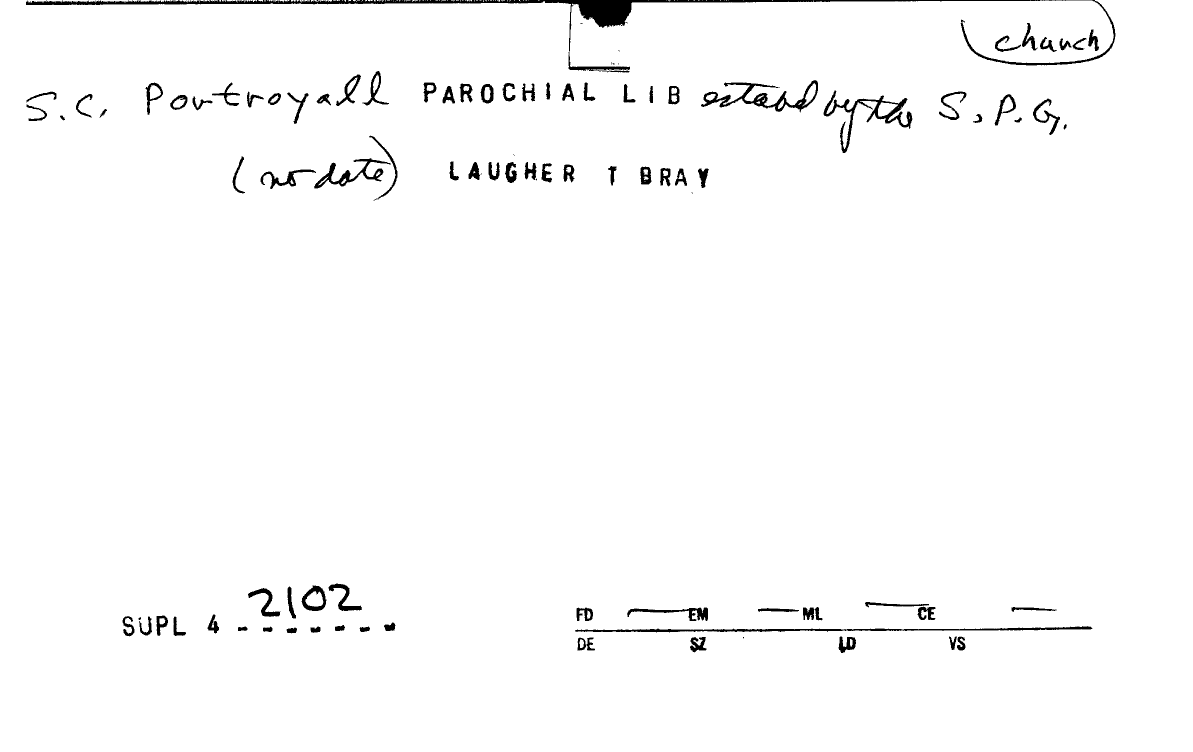 church
S.C. Portroyall PAROCHIAL LIB estabd by the S.P.G.
(no date) LAUGHER T BRAY
2102
SUPL 4 - - - - - - -
FD EM ML CE
DE SZ LD VS